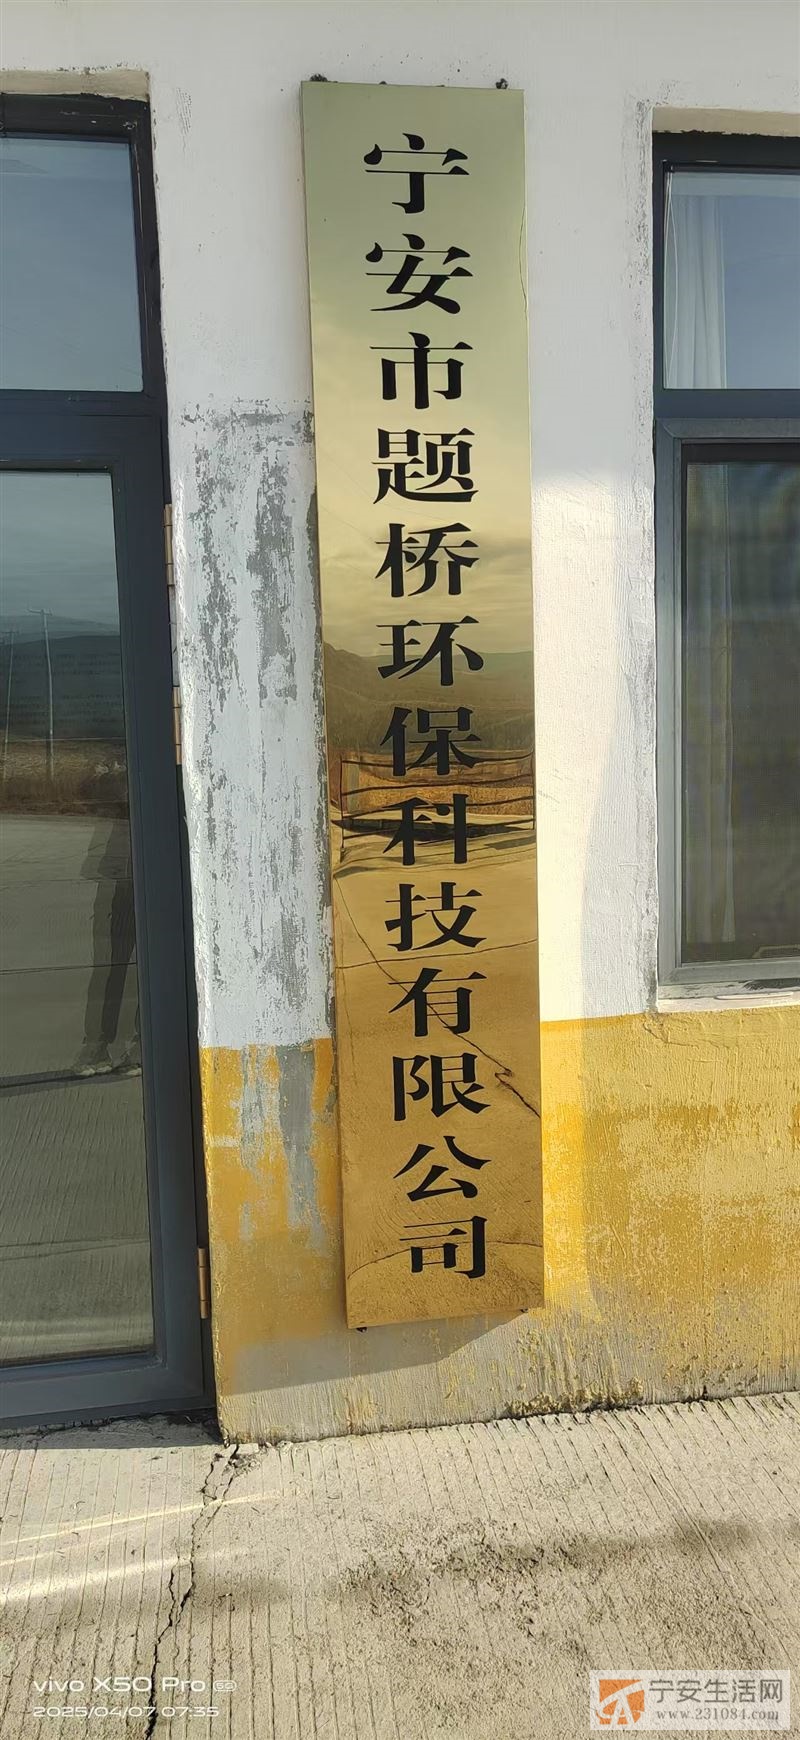 宁安市题桥环保科技有限公司
vivo X50 Pro 5G
2025/04/07 07:35
宁安生活网
www.231084.com